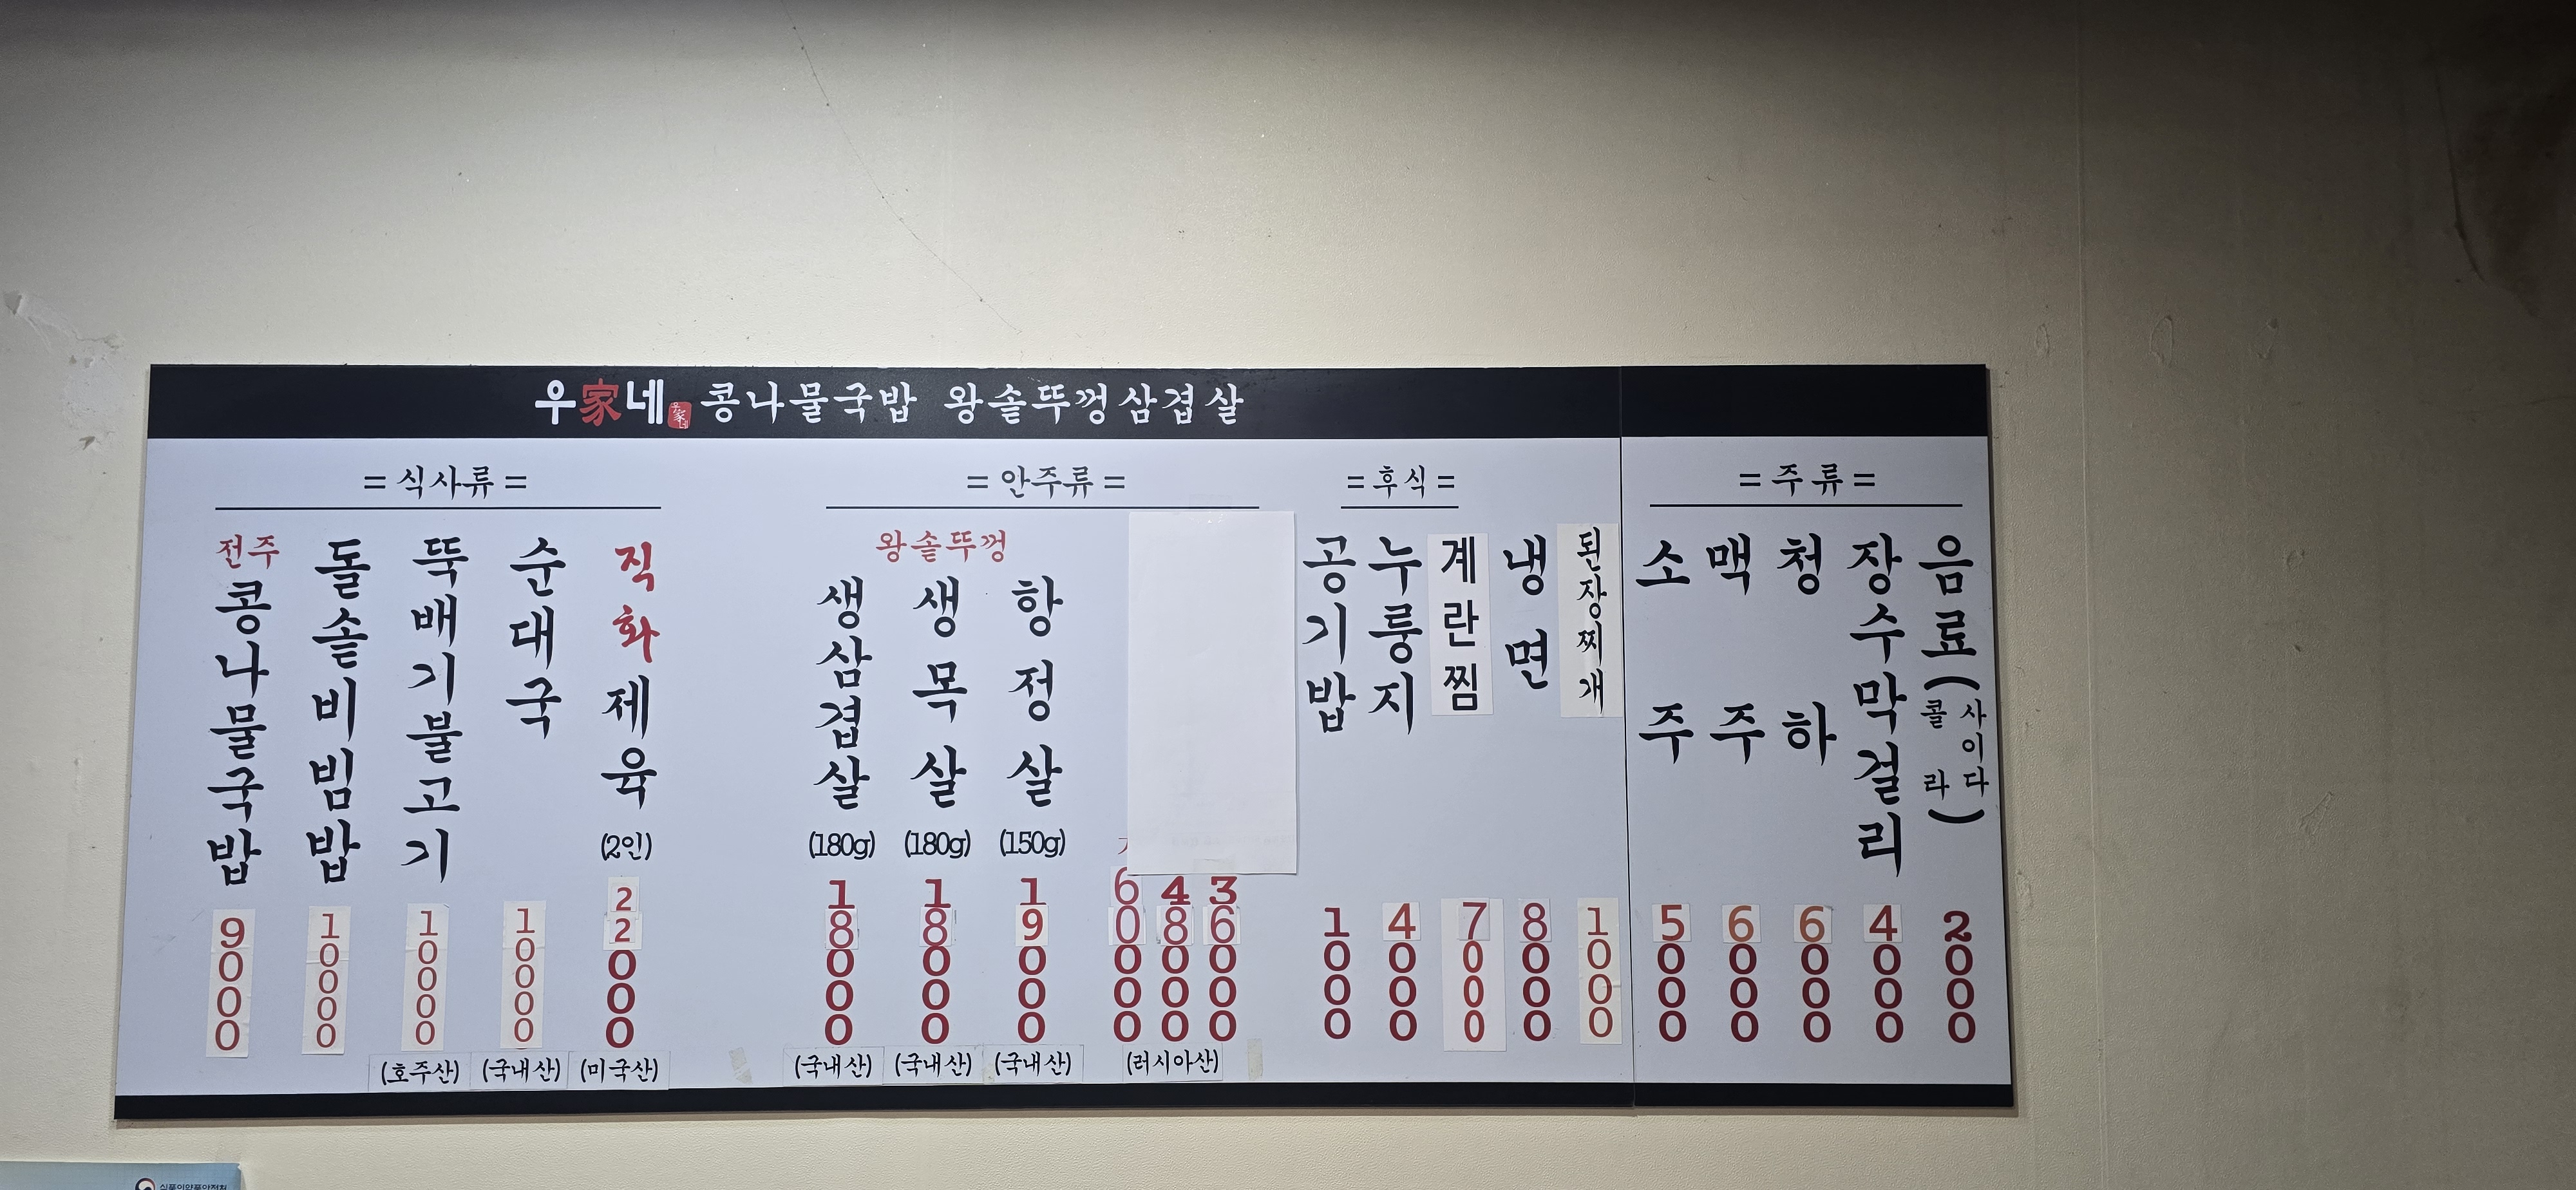 우家네 콩나물국밥 왕솥뚜껑삼겹살
= 식사류 =
전주 콩나물국밥 9000
돌솥비빔밥 10000
뚝배기불고기 10000 (호주산)
순대국 10000 (국내산)
직화제육 (2인) 22000 (미국산)
= 안주류 =
왕솥뚜껑
생삼겹살 (180g) 18000 (국내산)
생목살 (180g) 18000 (국내산)
항정살 (150g) 19000 (국내산)
60000 48000 36000 (러시아산)
= 후식 =
공기밥 1000
누룽지 4000
계란찜 7000
냉면 8000
된장찌개 1000
= 주류 =
소주 5000
맥주 6000
청하 6000
장수막걸리 4000
음료(콜라 사이다) 2000
식품의약품안전처